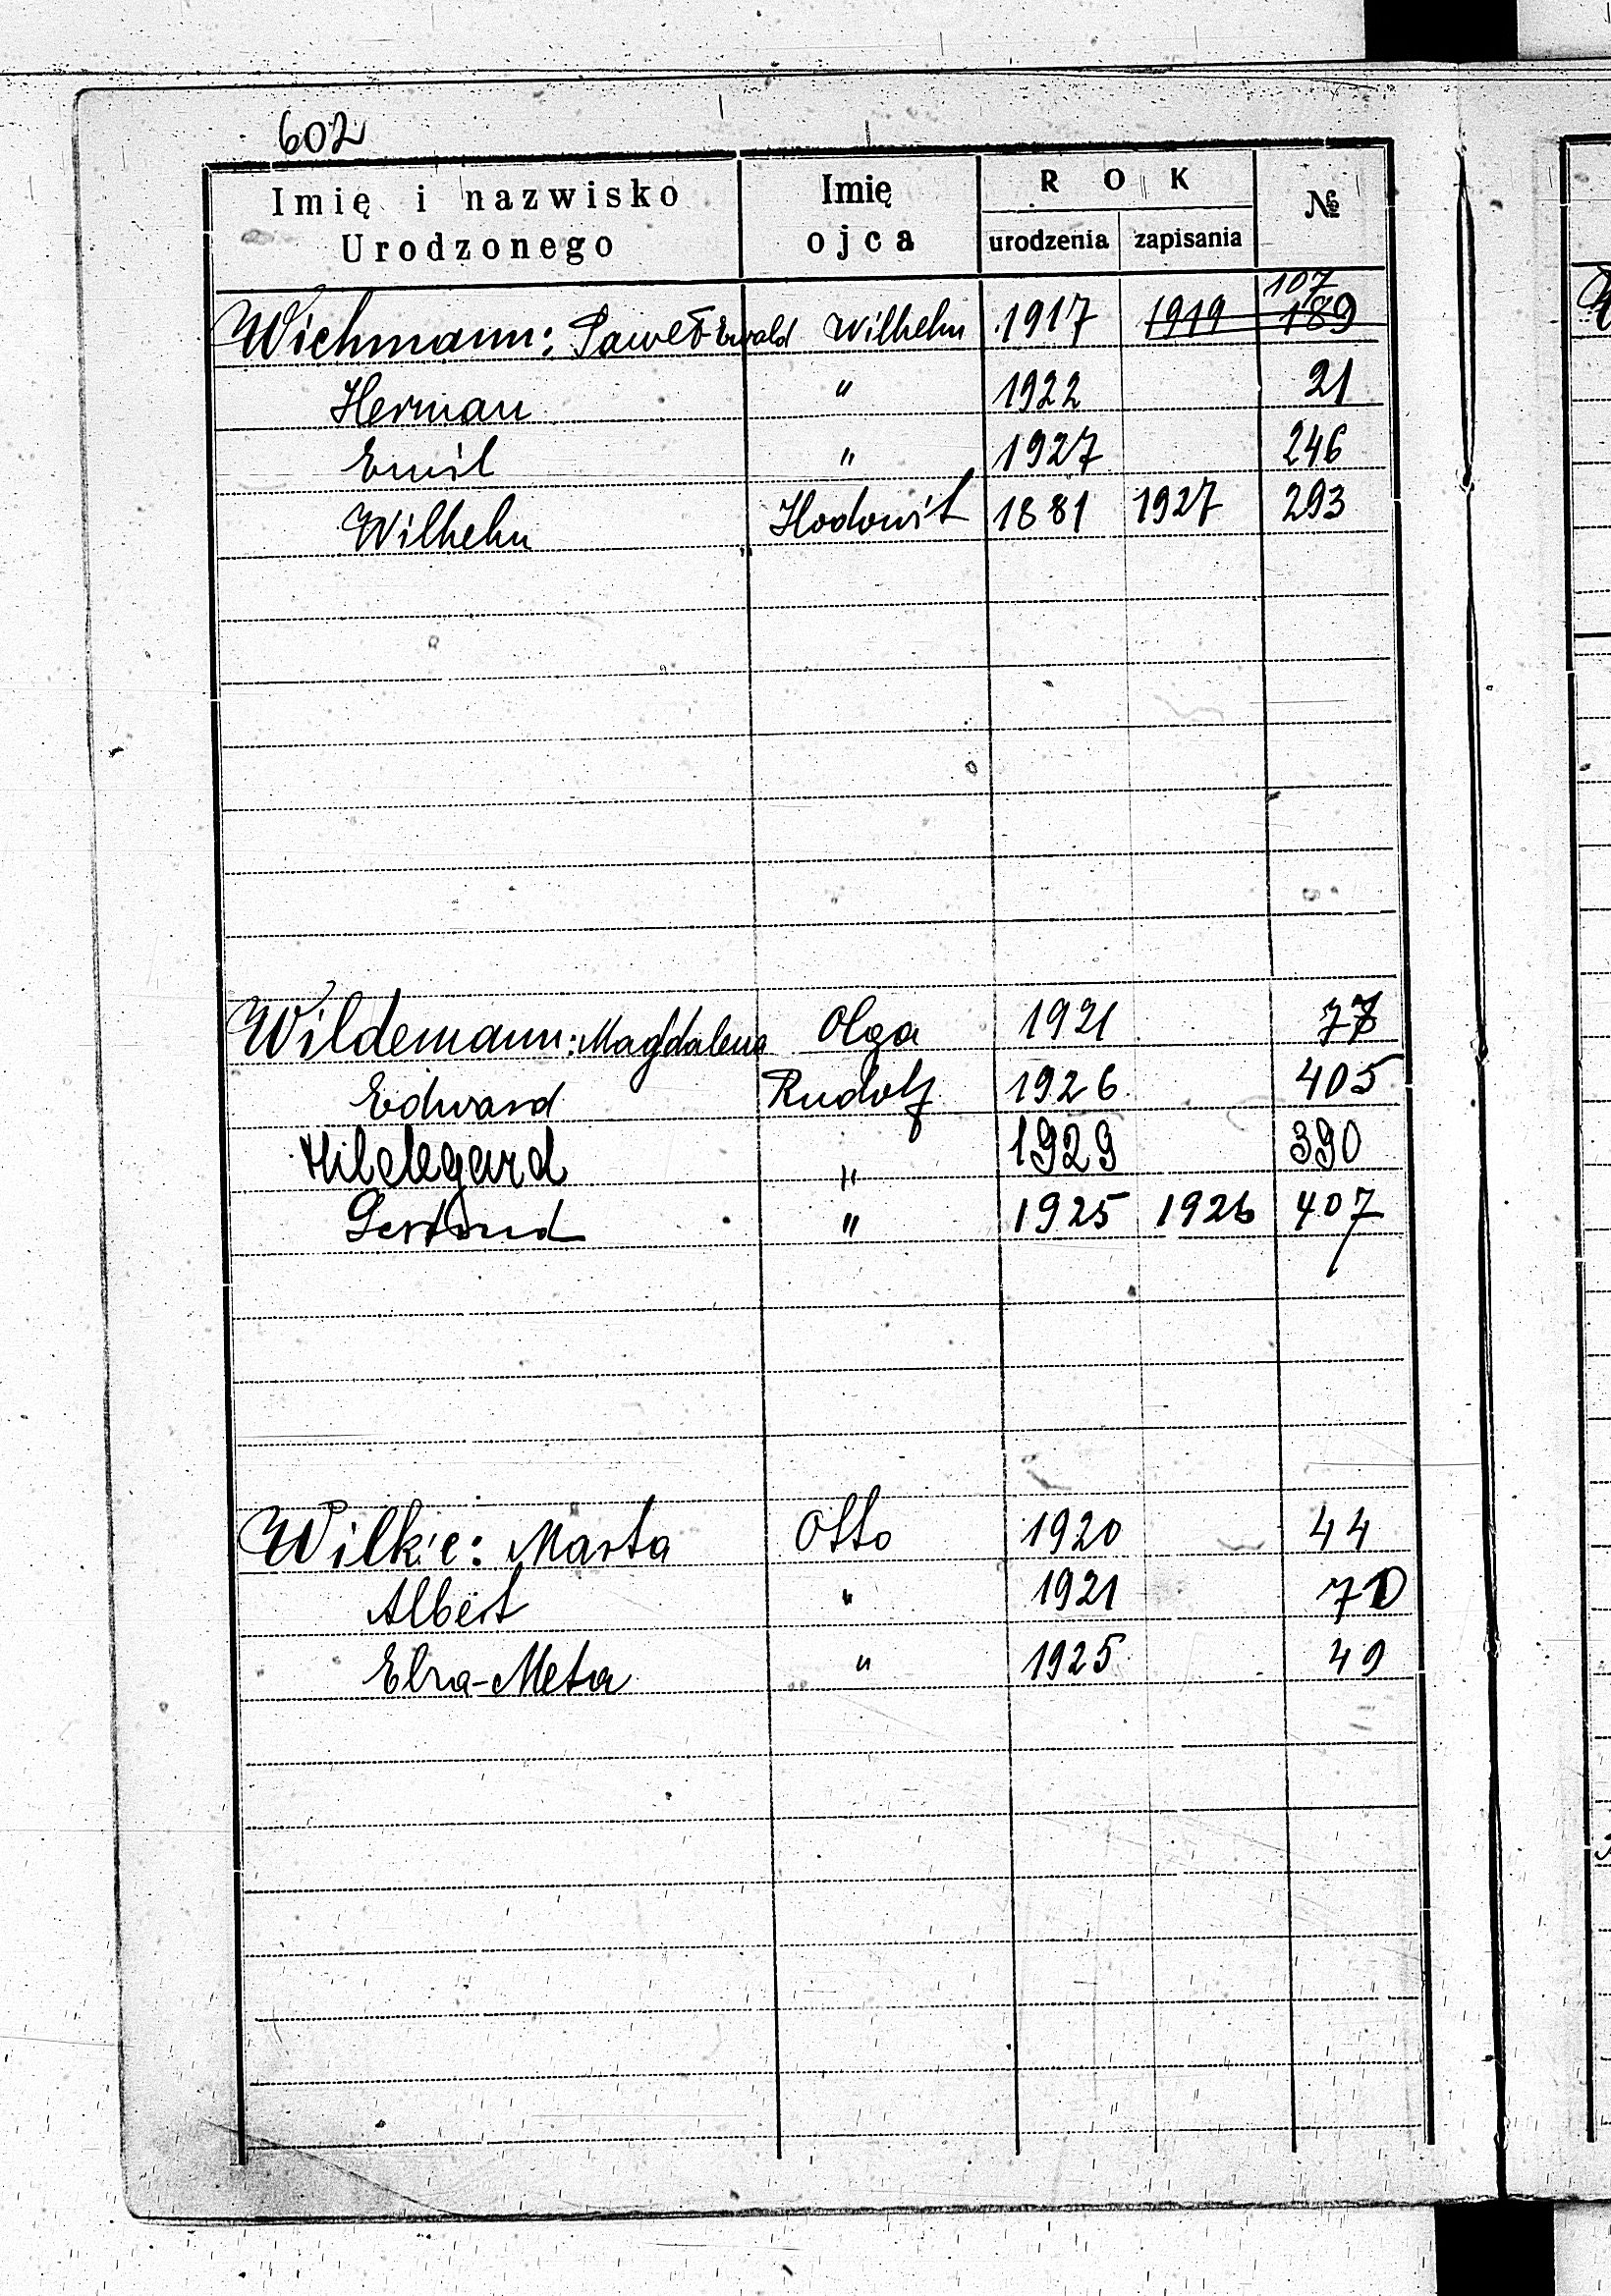 602
Imię i nazwisko Urodzonego | Imię ojca | ROK urodzenia | zapisania | №
107
Wichmann: Paweł Ewald Wilhelm 1917 1919 189
Herman " 1922 21
Emil " 1927 246
Wilhelm 1881 1927 293
Wildemann: Magdalena Olga 1921
Edward Rudolf 1926 405
Hildegard " 1929 390
Gertrud " 1925 1926 407
Wilkie: Marta Otto 1920 44
Albert " 1921
Elza-Meta " 1925 49